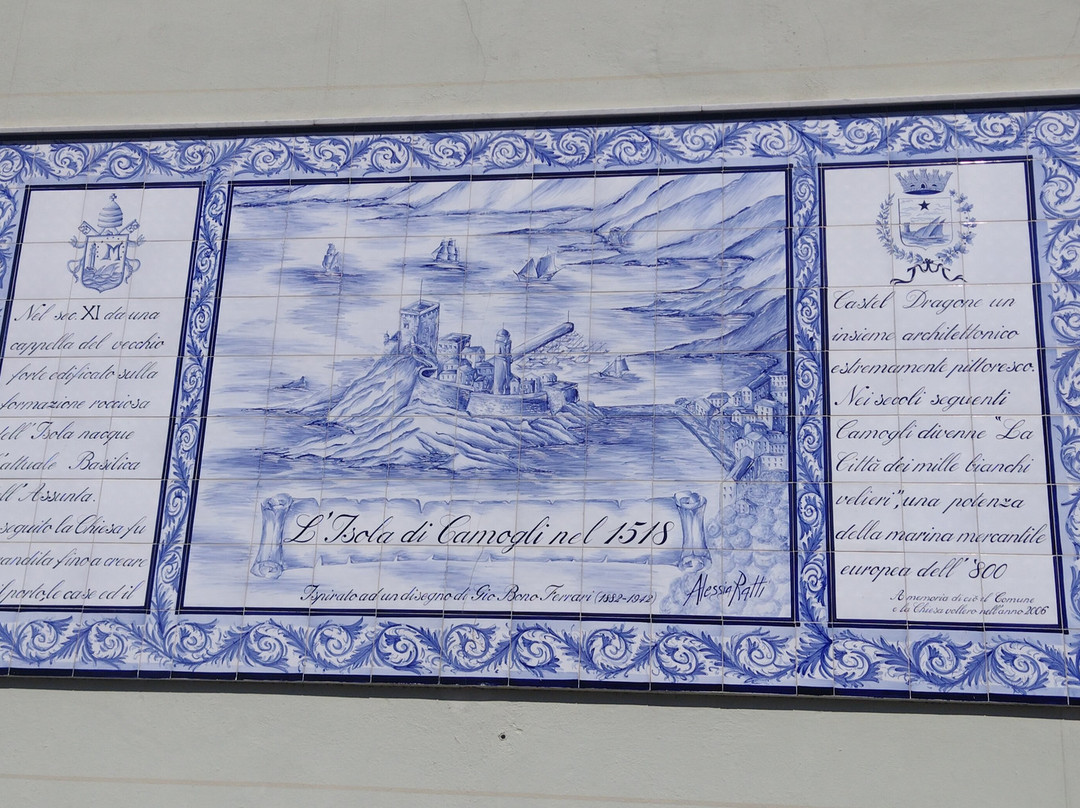 F. M
Nel sec. XI da una
cappella del vecchio
forte edificato sulla
formazione rocciosa
dell'Isola nacque
l'attuale Basilica
dell'Assunta.
seguito la Chiesa fu
fino a creare
il porto le case ed il
L'Isola di Camogli nel 1518
Ispirato ad un disegno di Gio Bono Ferrari (1882-1942)
Alessia Ratti
Castel Dragone un
insieme architettonico
estremamente pittoresco.
Nei secoli seguenti
Camogli divenne "La
Città dei mille bianchi
velieri", una potenza
della marina mercantile
europea dell' '800
A memoria di ciò il Comune
e la Chiesa vollero nell'anno 2006